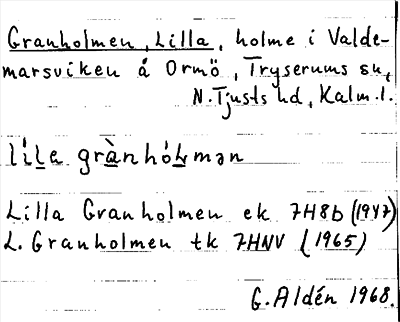 Granholmen, Lilla, holme i Valde-
marsviken å Ormö, Tryserums sn,
N. Tjusts hd, Kalm. l.
lìl̲e grànhól̲mən
Lilla Granholmen ek 7H8b (1947)
L. Granholmen tk 7HNV (1965)
G. Aldén 1968.